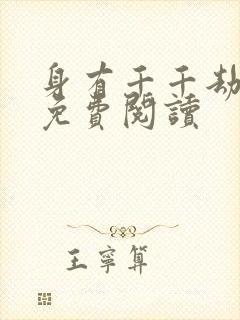 身有千千劫
免費閱讀
王寧算